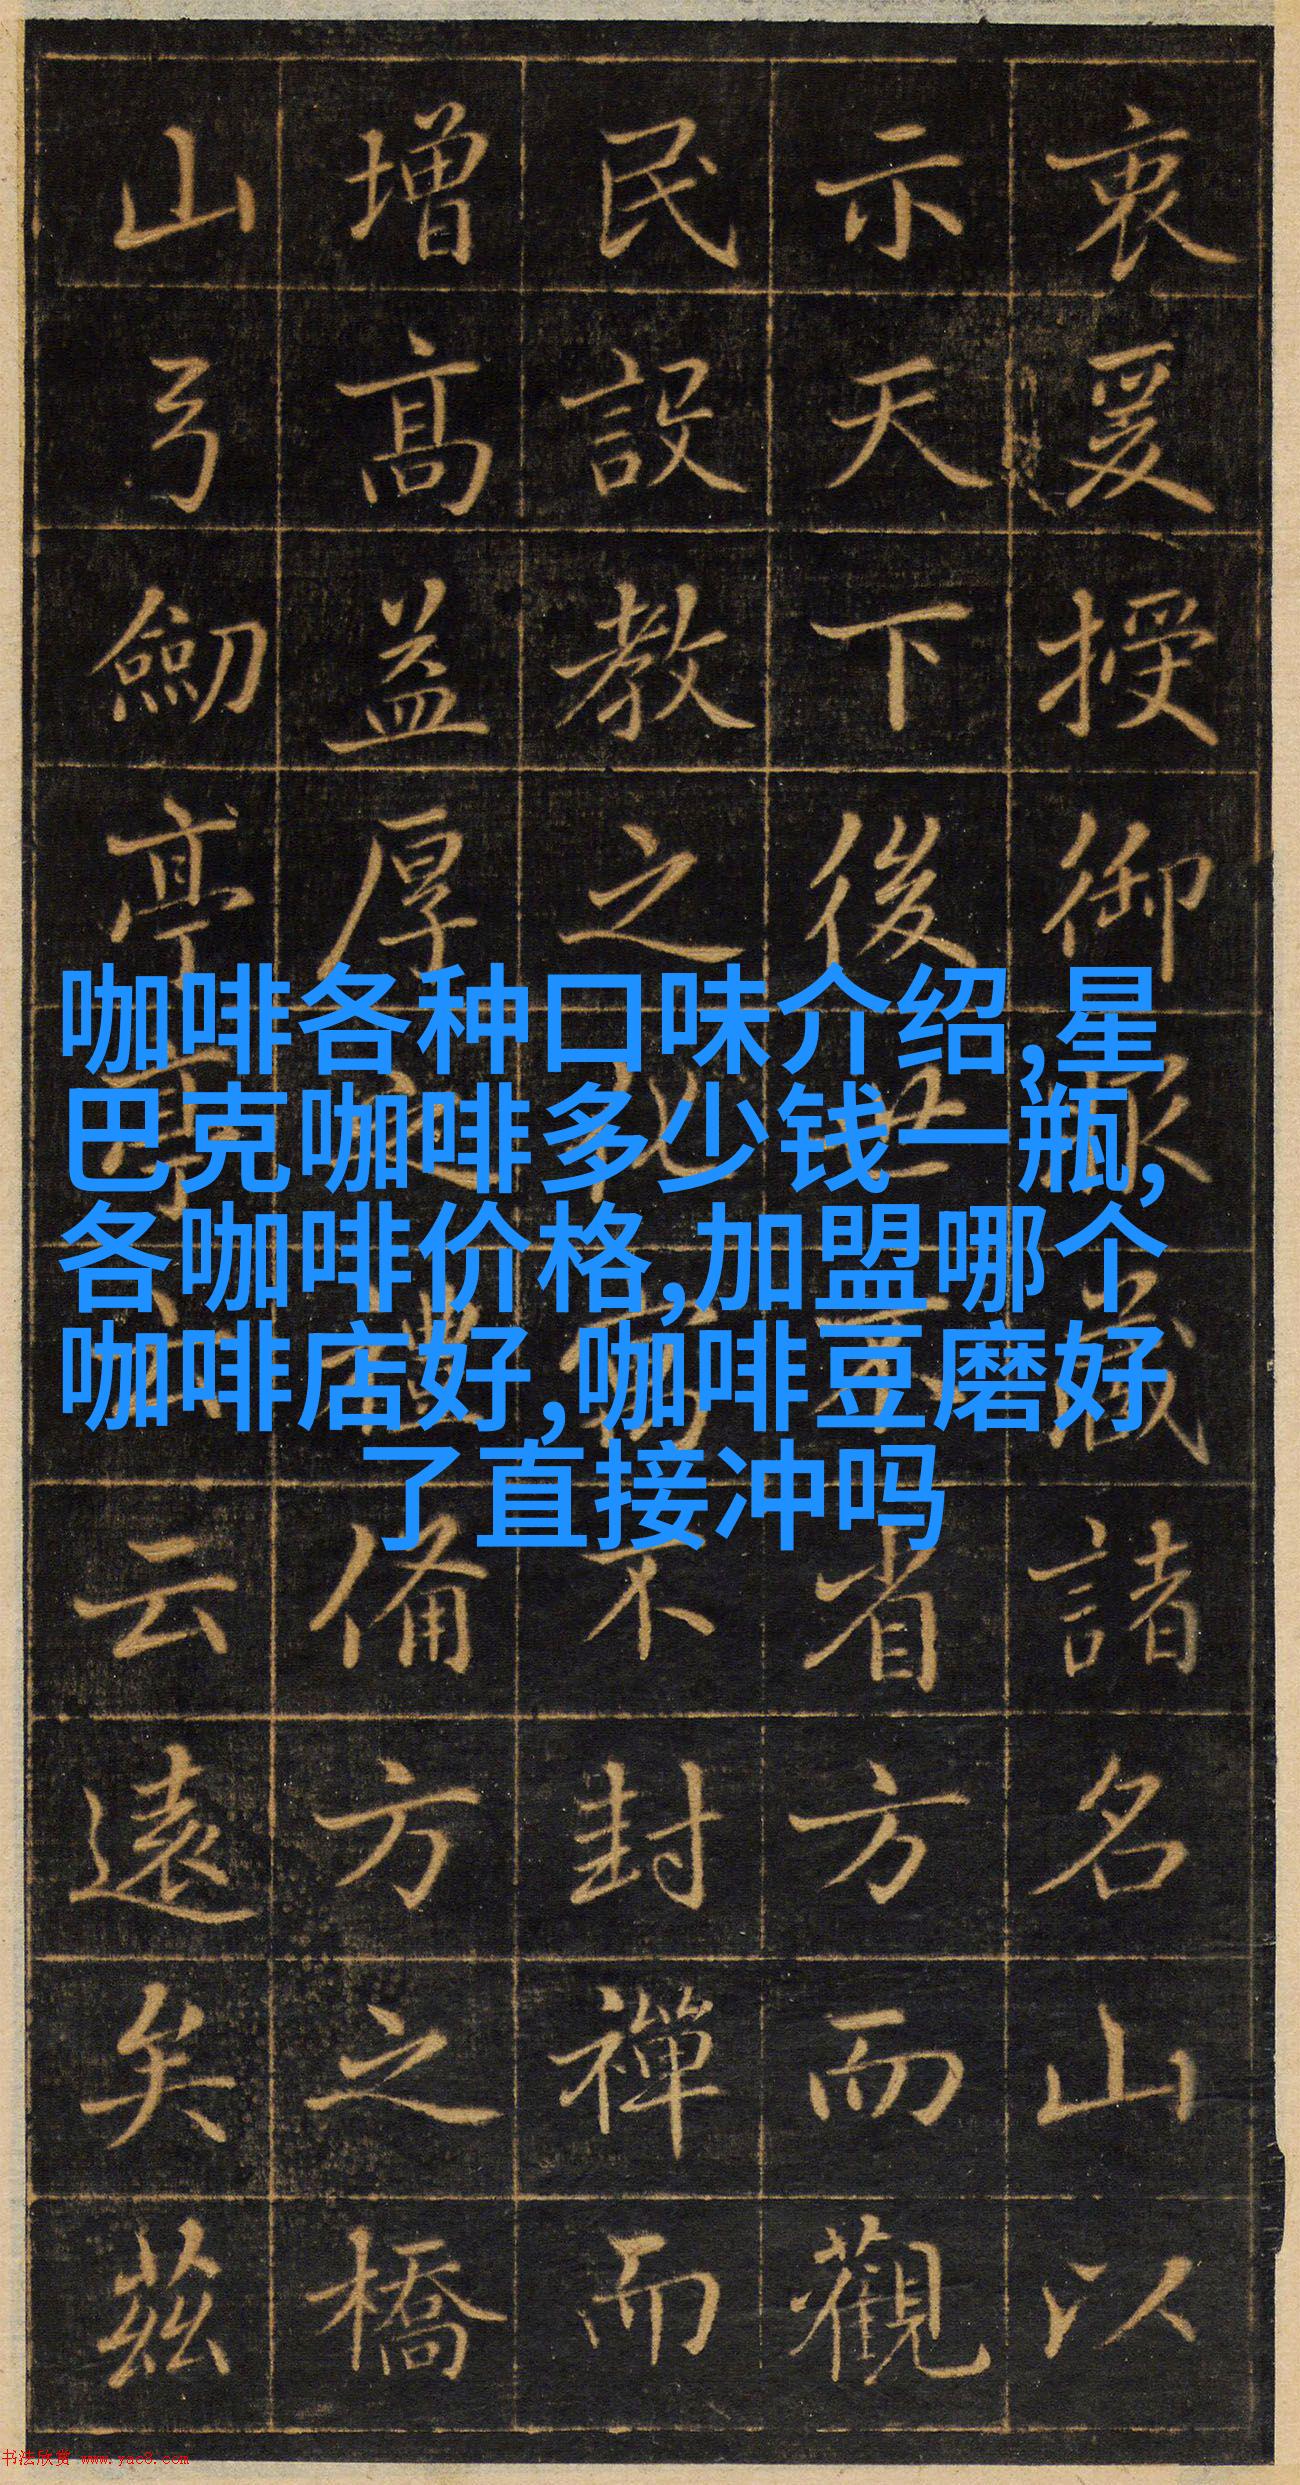 衷爰授御諸名山以
示天下後世省方而觀
民設教之不封禪而
增高益厚備方之橋
山弓劒亭云遠矣茲
咖啡各种口味介绍,星
巴克咖啡多少钱一瓶,
各咖啡价格,加盟哪个
咖啡店好,咖啡豆磨好
了直接冲吗
书法欣赏 www.yac8.com